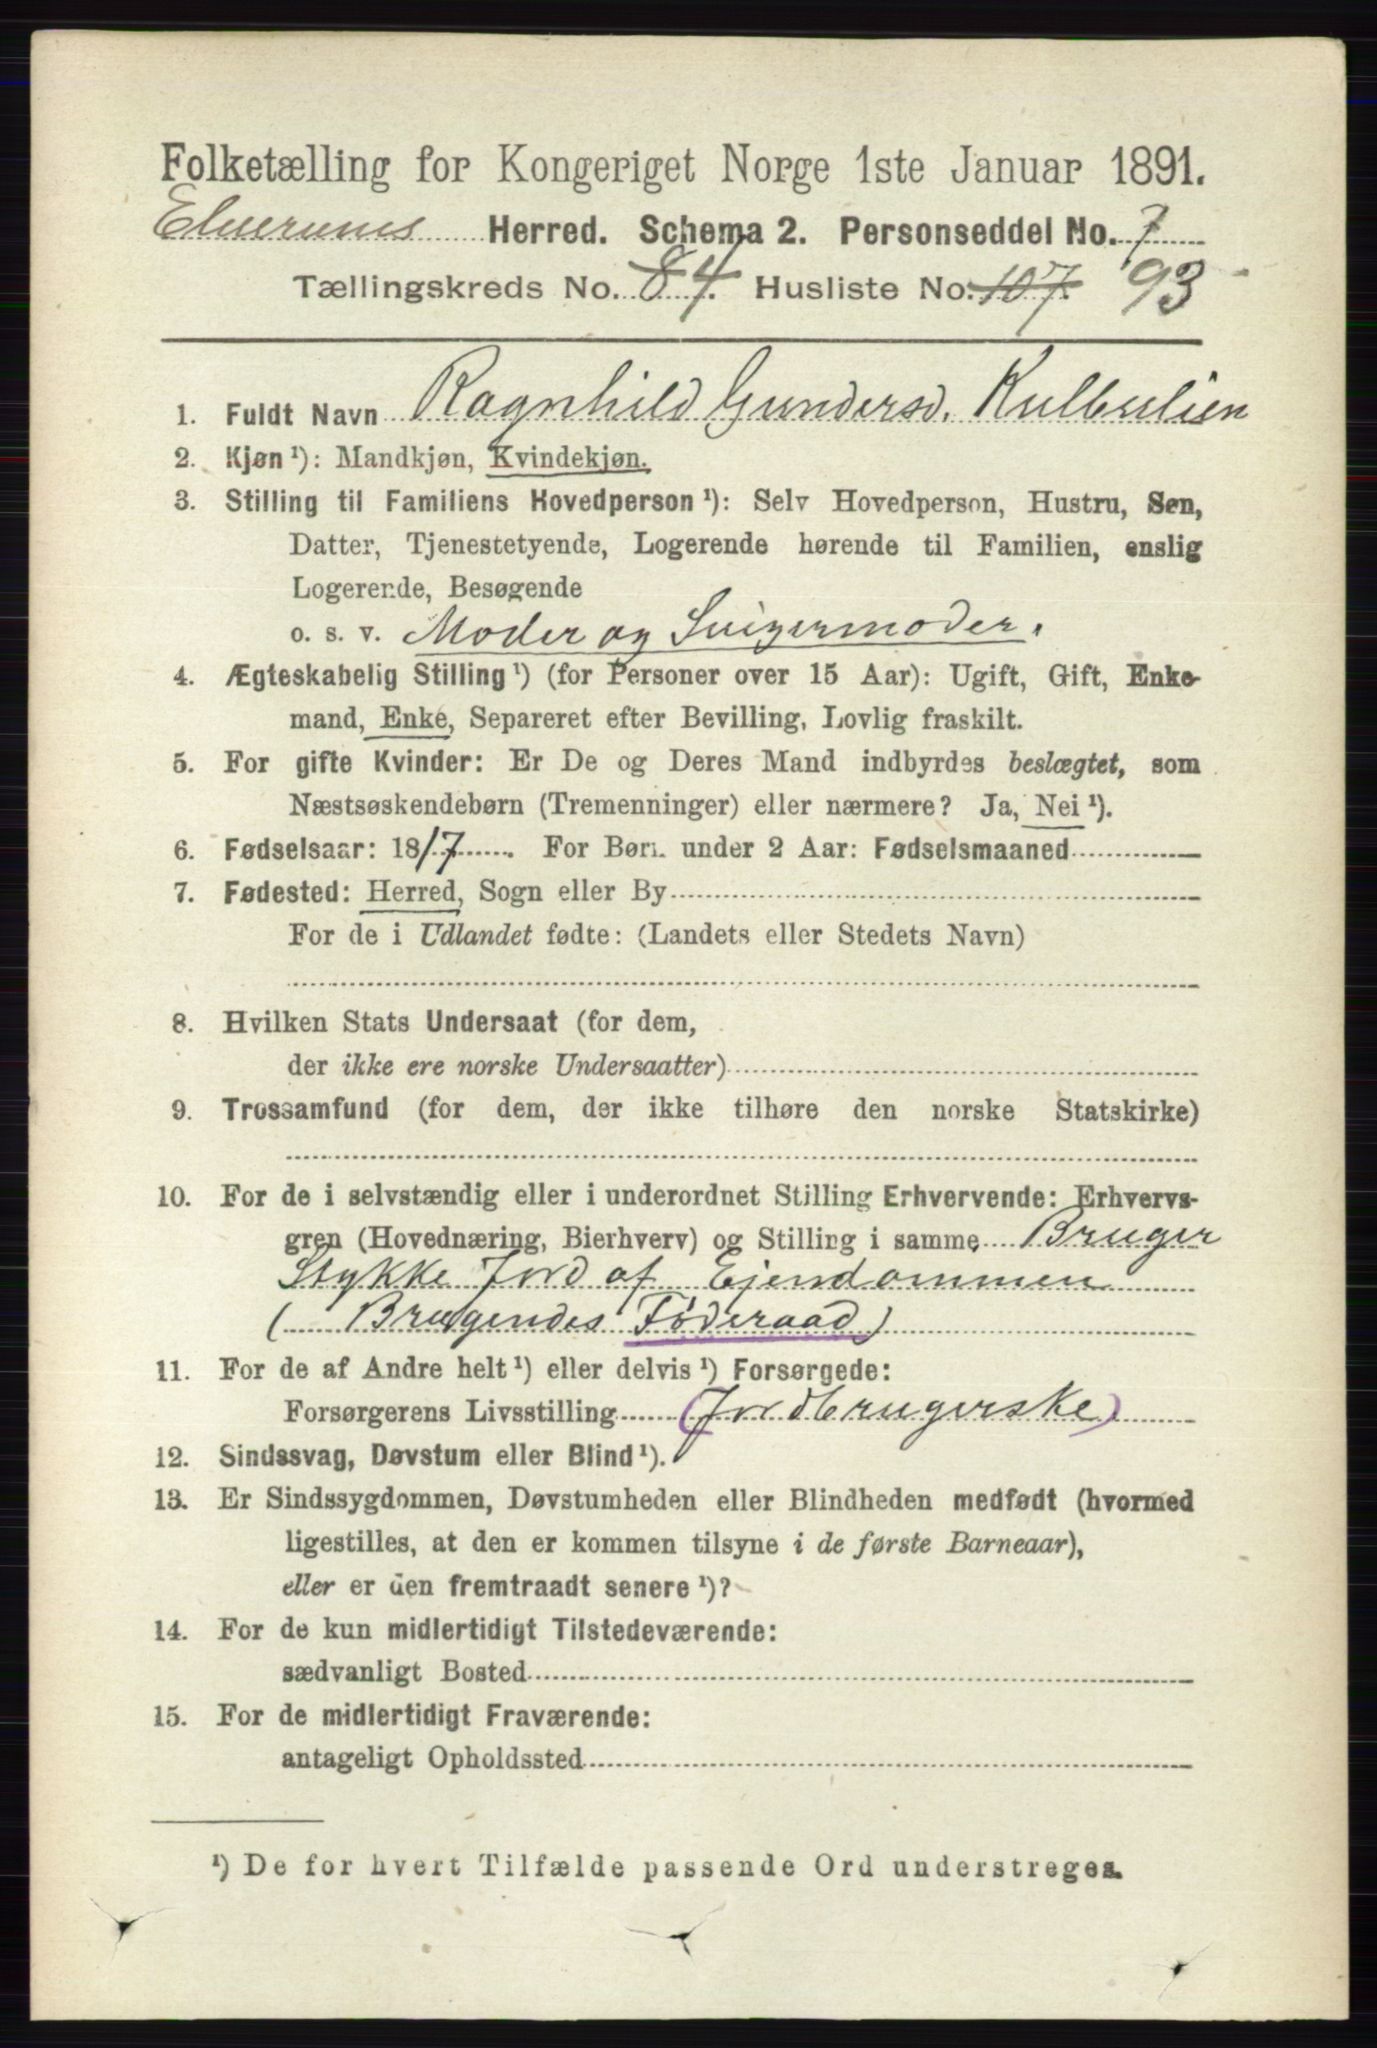 Folketælling for Kongeriget Norge 1ste Januar 1891.
Elverums Herred. Schema 2. Personseddel No. 7
Tællingskreds No. 8 4. Husliste No. 107. 93
1. Fuldt Navn Ragnhild Gundersd. Kulbulien
2. Kjøn ¹): Mandkjøn, Kvindekjøn.
3. Stilling til Familiens Hovedperson ¹): Selv Hovedperson, Hustru, Søn,
Datter, Tjenestetyende, Logerende hørende til Familien, enslig
Logerende, Besøgende
o. s. v. Moder og Svigermoder.
4. Ægteskabelig Stilling ¹) (for Personer over 15 Aar): Ugift, Gift, Enke-
mand, Enke, Separeret efter Bevilling, Lovlig fraskilt.
5. For gifte Kvinder: Er De og Deres Mand indbyrdes beslægtet, som
Næstsøskendebørn (Tremenninger) eller nærmere? Ja, Nei ¹).
6. Fødselsaar: 1817. For Børn under 2 Aar: Fødselsmaaned
7. Fødested: Herred, Sogn eller By
For de i Udlandet fødte: (Landets eller Stedets Navn)
8. Hvilken Stats Undersaat (for dem,
der ikke ere norske Undersaatter)
9. Trossamfund (for dem, der ikke tilhøre den norske Statskirke)
10. For de i selvstændig eller i underordnet Stilling Erhvervende: Erhvervs-
gren (Hovednæring, Bierhverv) og Stilling i samme Bruger
Stykke Jord af Ejendommen
( Brugendes Føderaad)
11. For de af Andre helt ¹) eller delvis ¹) Forsørgede:
Forsørgerens Livsstilling (Jordbrugerske)
12. Sindssvag, Døvstum eller Blind ¹).
13. Er Sindssygdommen, Døvstumheden eller Blindheden medfødt (hvormed
ligestilles, at den er kommen tilsyne i de første Barneaar),
eller er den fremtraadt senere ¹)?
14. For de kun midlertidigt Tilstedeværende:
sædvanligt Bosted
15. For de midlertidigt Fraværende:
antageligt Opholdssted
¹) De for hvert Tilfælde passende Ord understreges.